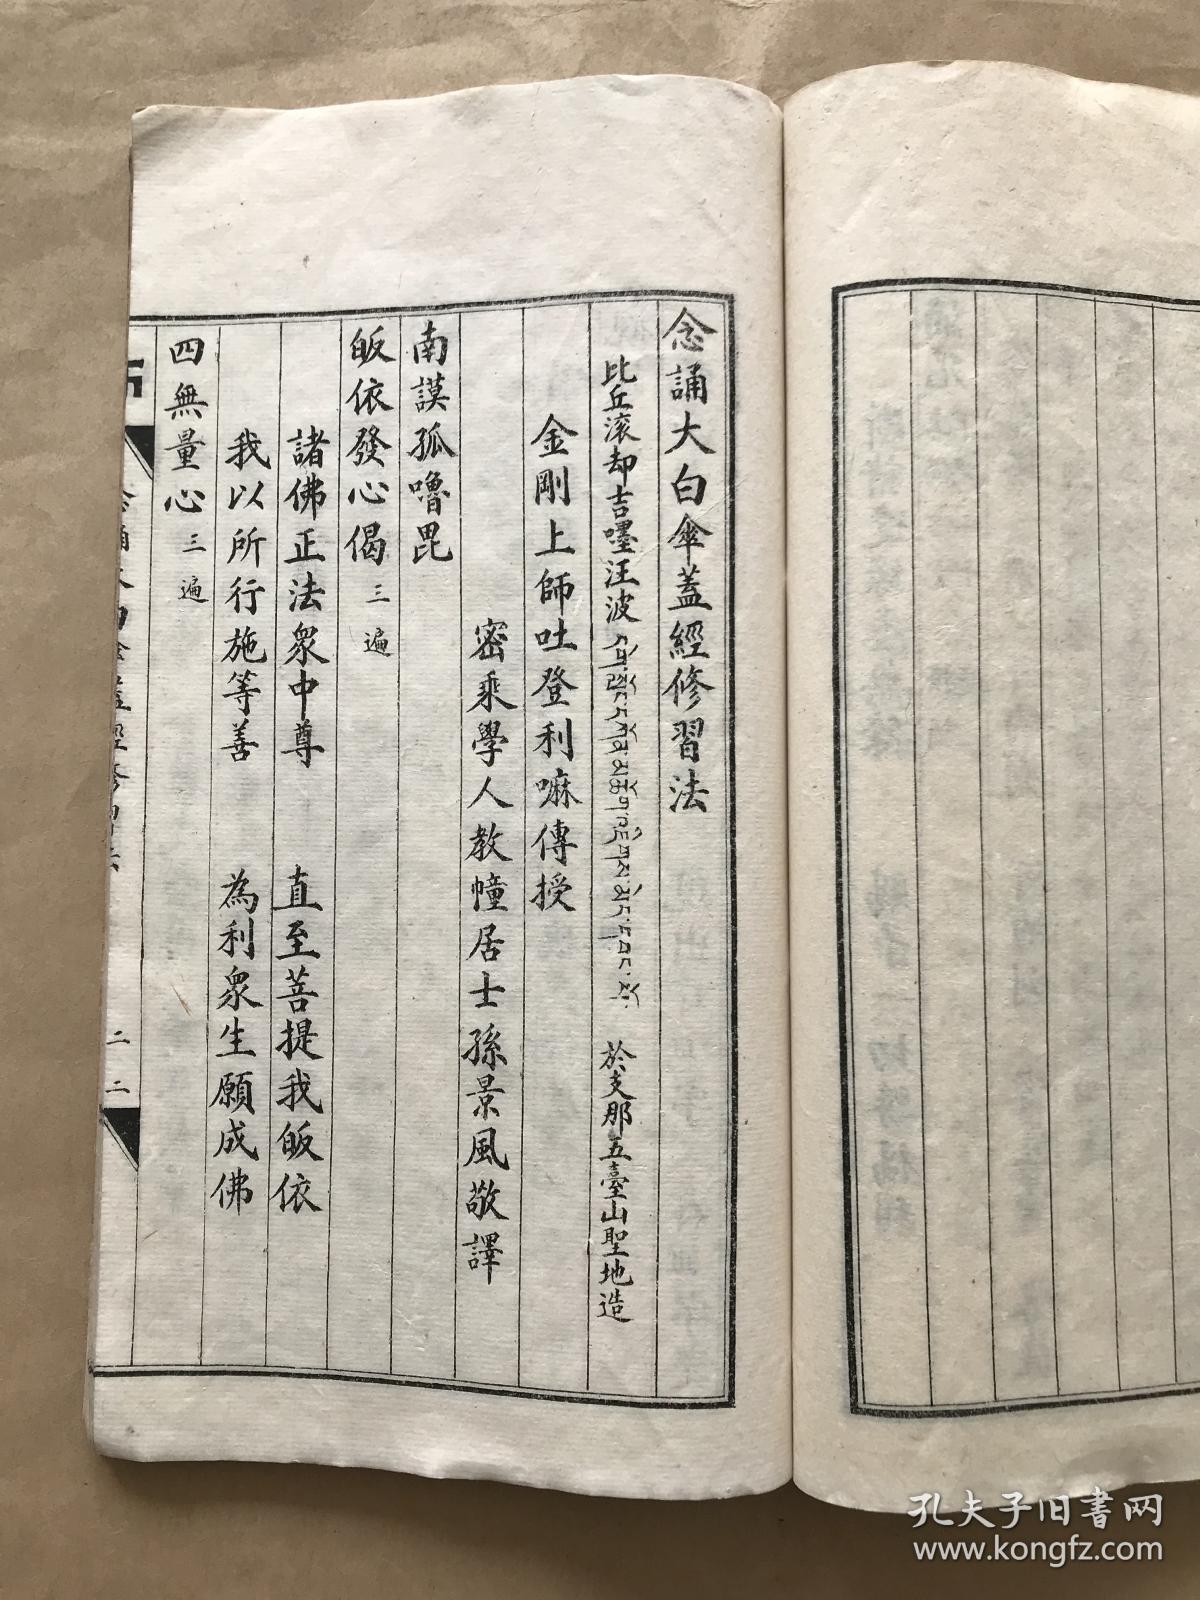 念誦大白傘蓋經修習法
比丘滚却吉嚜汪波 於支那五臺山聖地造
金剛上師吐登利嘛傳授
密乘學人教幢居士孫景風敬譯
南謨孤嚕毘
皈依發心偈 三遍
諸佛正法眾中尊 直至菩提我皈依
我以所行施等善 為利眾生願成佛
四無量心 三遍
二二
孔夫子旧書网
www.kongfz.com